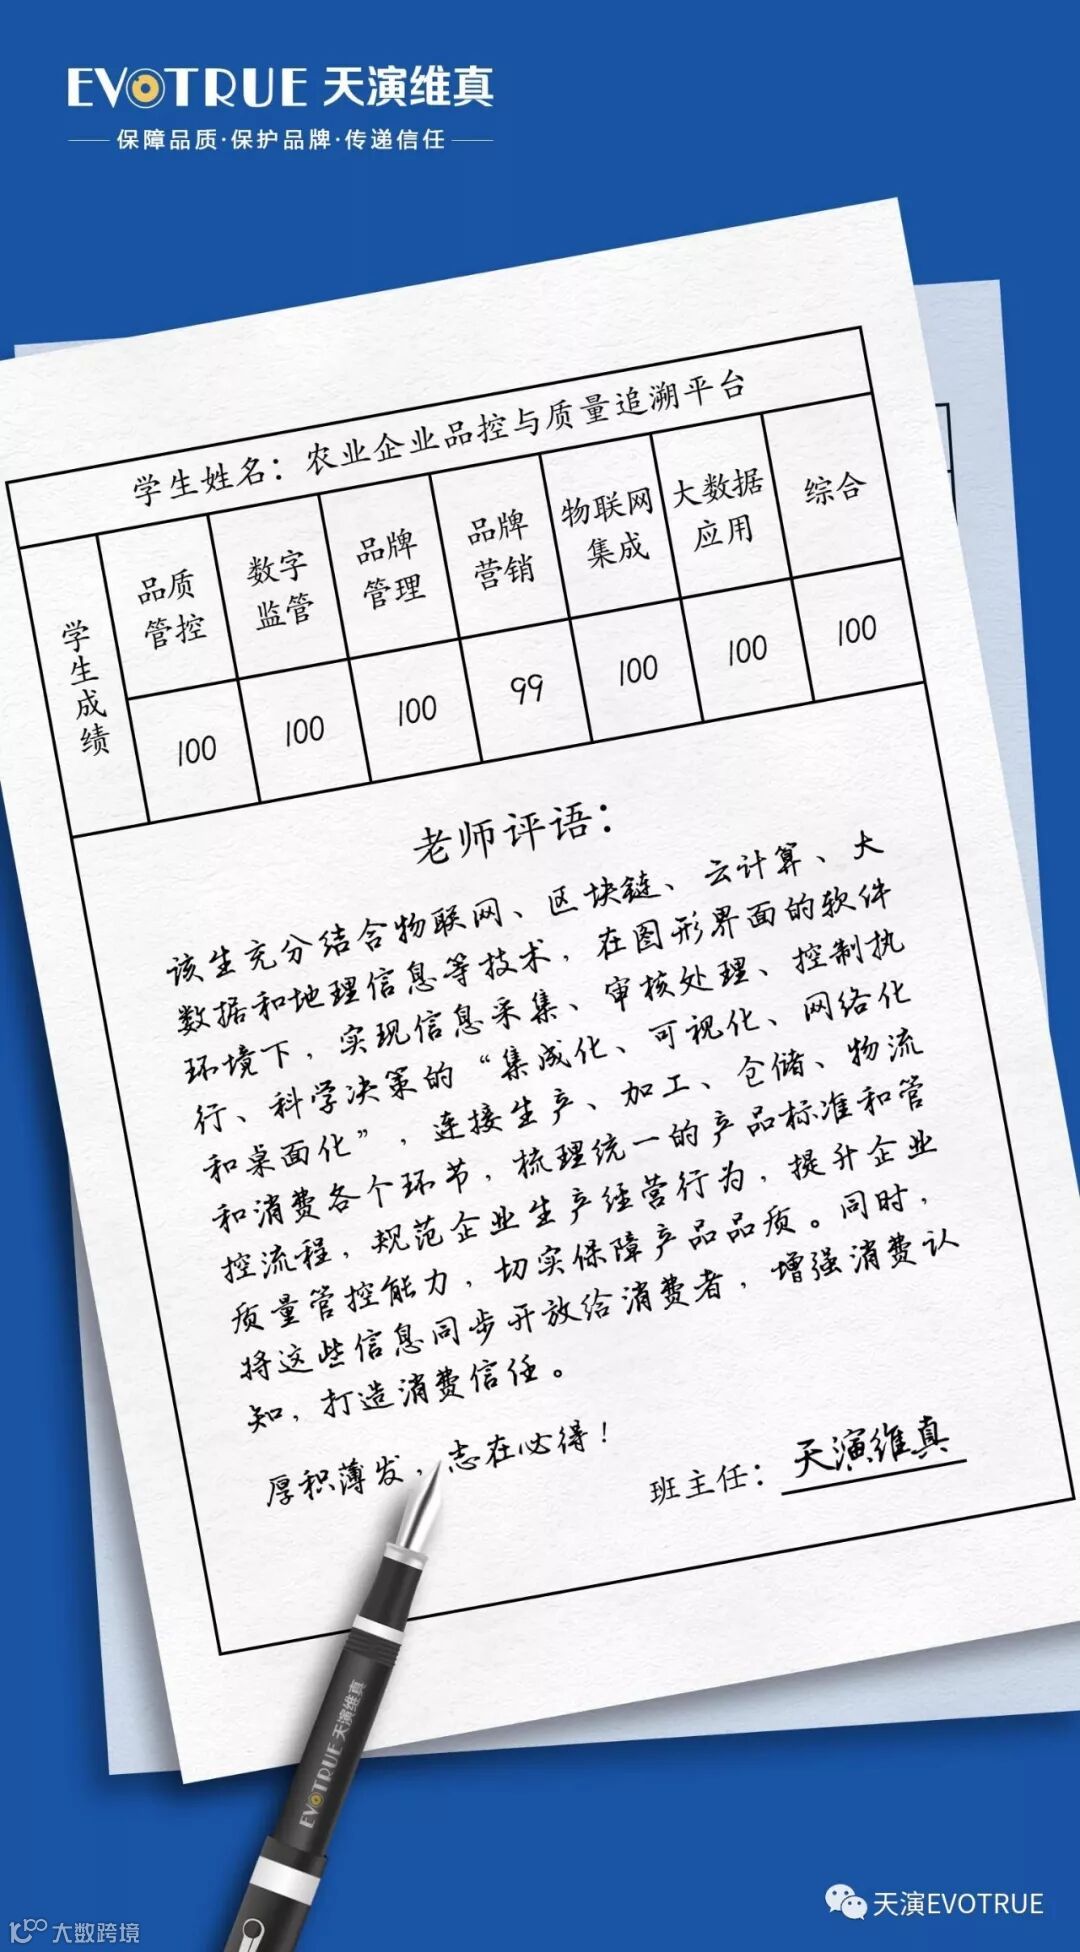 EVOTRUE 天演维真
保障品质·保护品牌·传递信任
学生姓名：农业企业品控与质量追溯平台
学生成绩
品质管控
数字监管
品牌管理
品牌营销
物联网集成
大数据应用
综合
100
100
100
99
100
100
100
老师评语：
该生充分结合物联网、区块链、云计算、大
数据和地理信息等技术，在图形界面的软件
环境下，实现信息采集、审核处理、控制执
行、科学决策的“集成化、可视化、网络化
和桌面化”，连接生产、加工、仓储、物流
和消费各个环节，梳理统一的产品标准和管
控流程，规范企业生产经营行为，提升企业
质量管控能力，切实保障产品品质。同时，
将这些信息同步开放给消费者，增强消费认
知，打造消费信任。
厚积薄发，志在必得！
班主任：天演维真
EVOTRUE 天演维真
天演EVOTRUE
大数跨境